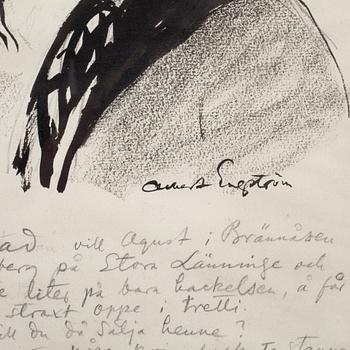 Albert Engström
vill Agust i Brännåsen
på Stora Länninge och
liter på bara hackelsen, å får
strax oppe i tretti.
du då sälja henne?